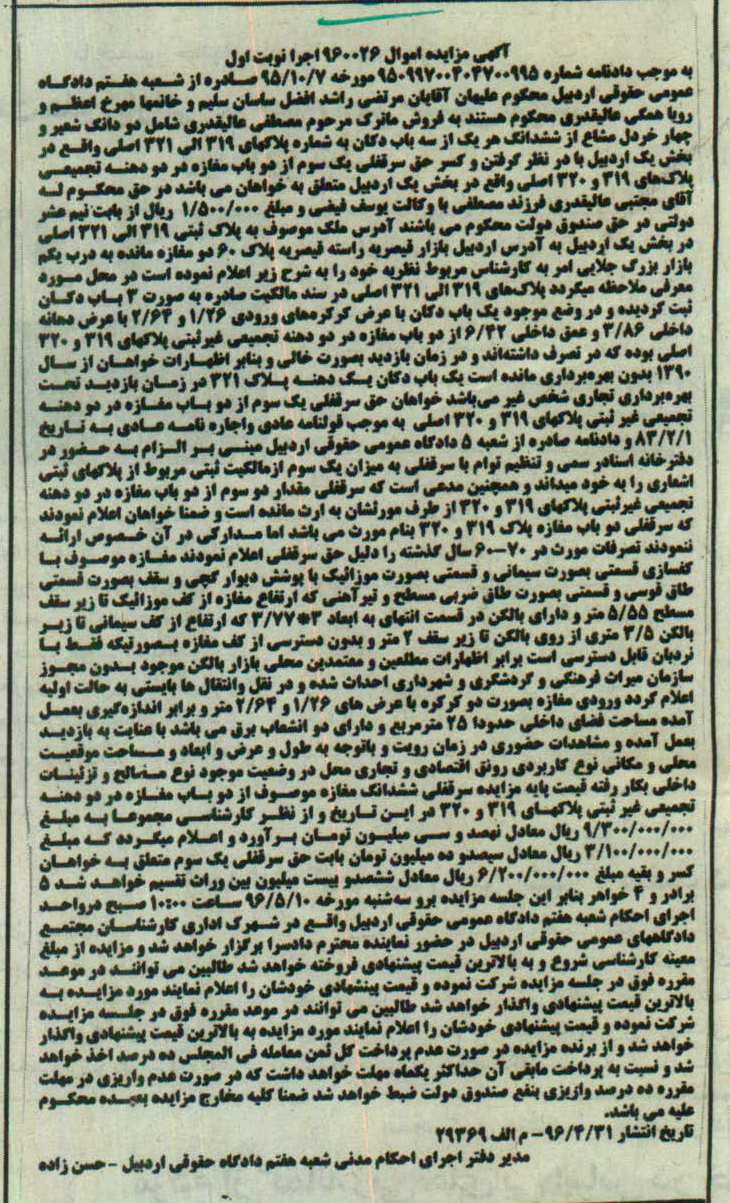 آگهی مزایده اموال ۹۶۰۰۲۶ اجرا نوبت اول
به موجب دادنامه شماره ۹۵۰۹۹۷۰۰۴۰۴۷۰۰۹۹۵ مورخه ۹۵/۱۰/۷ صادره از شعبه هفتم دادگاه
عمومی حقوقی اردبیل محکوم علیهان آقایان مرتضی راشد افضل ساسان سلیم و خانمها مهرخ اعظم و
رویا همگی عالیقدری محکوم هستند به فروش ماترک مرحوم مصطفی عالیقدری شامل دو دانک شعیر و
چهار خردل مشاع از ششدانگ هر یک از سه باب دکان به شماره پلاکهای ۳۱۹ الی ۳۲۱ اصلی واقع در
بخش یک اردبیل با در نظر گرفتن و کسر حق سرقفلی یک سوم از دو باب مغازه در دو دهنه تجمیعی
پلاک‌های ۳۱۹ و ۳۲۰ اصلی واقع در بخش یک اردبیل متعلق به خواهان می باشد در حق محکوم له
آقای مجتبی عالیقدری فرزند مصطفی با وکالت یوسف فیضی و مبلغ ۱/۵۰۰/۰۰۰ ریال از بابت نیم عشر
دولتی در حق صندوق دولت محکوم می باشند آدرس ملک موصوف به پلاک ثبتی ۳۱۹ الی ۳۲۱ اصلی
در بخش یک اردبیل به آدرس اردبیل بازار قیصریه راسته قیصریه پلاک ۶۰ دو مغازه مانده به درب یکم
بازار بزرگ جلایی امر به کارشناس مربوط نظریه خود را به شرح زیر اعلام نموده است در محل مورد
معرفی ملاحظه میگردد پلاک‌های ۳۱۹ الی ۳۲۱ اصلی در سند مالکیت صادره به صورت ۳ باب دکان
ثبت گردیده و در وضع موجود یک باب دکان با عرض کرکره‌های ورودی ۱/۲۶ و ۲/۶۴ با عرض دهانه
داخلی ۳/۸۶ و عمق داخلی ۶/۴۲ از دو باب مغازه در دو دهنه تجمیعی غیرثبتی پلاکهای ۳۱۹ و ۳۲۰
اصلی بوده که در تصرف داشته‌اند و در زمان بازدید بصورت خالی و بنابر اظهارات خواهان از سال
۱۳۹۰ بدون بهره‌برداری مانده است یک باب دکان یک دهنه پلاک ۳۲۱ در زمان بازدید تحت
بهره‌برداری تجاری شخص غیر می‌باشد خواهان حق سرقفلی یک سوم از دو باب مغازه در دو دهنه
تجمیعی غیر ثبتی پلاکهای ۳۱۹ و ۳۲۰ اصلی به موجب قولنامه عادی واجاره نامه عادی به تاریخ
۸۳/۲/۱ و دادنامه صادره از شعبه ۵ دادگاه عمومی حقوقی اردبیل مبنی بر الزام به حضور در
دفترخانه اسنادر سمی و تنظیم توام با سرقفلی به میزان یک سوم ازمالکیت ثبتی مربوط از پلاکهای ثبتی
اشعاری را به خود میداند و همچنین مدعی است که سرقفلی مقدار دو سوم از دو باب مغازه در دو دهنه
تجمیعی غیرثبتی پلاکهای ۳۱۹ و ۳۲۰ از طرف مورثشان به ارث مانده است و ضمنا خواهان اعلام نمودند
که سرقفلی دو باب مغازه پلاک ۳۱۹ و ۳۲۰ بنام مورث می باشد اما مدارکی در آن خصوص ارائه
ننمودند تصرفات مورث در ۷۰-۶۰ سال گذشته را دلیل حق سرقفلی اعلام نمودند مغازه موصوف با
کفسازی قسمتی بصورت سیمانی و قسمتی بصورت موزائیک با پوشش دیوار گچی و سقف بصورت قسمتی
طاق قوسی و قسمتی بصورت طاق ضربی مسطح و تیرآهنی که ارتفاع مغازه از کف موزائیک تا زیر سقف
مسطح ۵/۵۵ متر و دارای بالکن در قسمت انتهای به ابعاد ۳*۳/۷۷ که ارتفاع از کف سیمانی تا زیر
بالکن ۳/۵ متری از روی بالکن تا زیر سقف ۲ متر و بدون دسترسی از کف مغازه بصورتیکه فقط با
نردبان قابل دسترسی است برابر اظهارات مطلعین و معتمدین محلی بازار بالکن موجود بدون مجوز
سازمان میراث فرهنگی و گردشگری و شهرداری احداث شده و در نقل وانتقال ها بایستی به حالت اولیه
اعلام گردد ورودی مغازه بصورت دو کرکره با عرض های ۱/۲۶ و ۲/۶۴ متر و برابر اندازه‌گیری بعمل
آمده مساحت فضای داخلی حدودا ۲۵ مترمربع و دارای دو انشعاب برق می باشد با عنایت به بازدید
بعمل آمده و مشاهدات حضوری در زمان رویت و باتوجه به طول و عرض و ابعاد و مساحت موقعیت
محلی و مکانی نوع کاربردی رونق اقتصادی و تجاری محل در وضعیت موجود نوع مصالح و تزئینات
داخلی بکار رفته قیمت پایه مزایده سرقفلی ششدانک مغازه موصوف از دو باب مغازه در دو دهنه
تجمیعی غیر ثبتی پلاکهای ۳۱۹ و ۳۲۰ در این تاریخ و از نظر کارشناسی مجموعا به مبلغ
۹/۳۰۰/۰۰۰/۰۰۰ ریال معادل نهصد و سی میلیون تومان برآورد و اعلام میگردد که مبلغ
۳/۱۰۰/۰۰۰/۰۰۰ ریال معادل سیصدو ده میلیون تومان بابت حق سرقفلی یک سوم متعلق به خواهان
کسر و بقیه مبلغ ۶/۲۰۰/۰۰۰/۰۰۰ ریال معادل ششصدو بیست میلیون بین وراث تقسیم خواهد شد ۵
برادر و ۴ خواهر بنابر این جلسه مزایده برو سه‌شنبه مورخه ۹۶/۵/۱۰ ساعت ۱۰:۰۰ صبح درواحد
اجرای احکام شعبه هفتم دادگاه عمومی حقوقی اردبیل واقع در شهرک اداری کارشناسان مجتمع
دادگاههای عمومی حقوقی اردبیل در حضور نماینده محترم دادسرا برگزار خواهد شد و مزایده از مبلغ
معینه کارشناسی شروع و به بالاترین قیمت پیشنهادی فروخته خواهد شد طالبین می توانند در موعد
مقرره فوق در جلسه مزایده شرکت نموده و قیمت پیشنهادی خودشان را اعلام نمایند مورد مزایده به
بالاترین قیمت پیشنهادی واگذار خواهد شد طالبین می توانند در موعد مقرره فوق در جلسه مزایده
شرکت نموده و قیمت پیشنهادی خودشان را اعلام نمایند مورد مزایده به بالاترین قیمت پیشنهادی واگذار
خواهد شد و از برنده مزایده در صورت عدم پرداخت کل ثمن معامله فی المجلس ده درصد اخذ خواهد
شد و نسبت به پرداخت مابقی آن حداکثر یکماه مهلت خواهد داشت که در صورت عدم واریزی در مهلت
مقرره ده درصد واریزی بنفع صندوق دولت ضبط خواهد شد ضمنا کلیه مخارج مزایده بعهده محکوم
علیه می باشد.
تاریخ انتشار ۹۶/۴/۳۱- م الف ۲۹۳۶۹
مدیر دفتر اجرای احکام مدنی شعبه هفتم دادگاه حقوقی اردبیل - حسن زاده